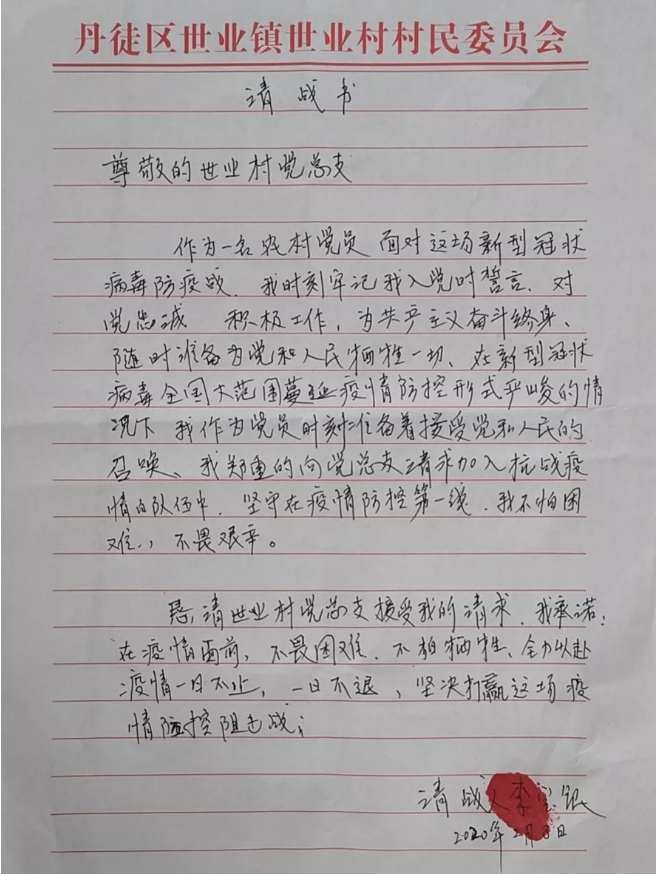 丹徒区世业镇世业村村民委员会
请战书
尊敬的世业村党总支
作为一名农村党员 面对这场新型冠状
病毒防疫战．我时刻牢记我入党时誓言．对
党忠诚 积极工作，为共产主义奋斗终身、
随时准备为党和人民牺牲一切、在新型冠状
病毒全国大范围蔓延疫情防控形式严峻的情
况下 我作为党员时刻准备着接受党和人民的
召唤、我郑重的向党总支请求加入抗战疫
情的队伍中．坚守在疫情防控第一线．我不怕困
难，不畏艰辛。
恳请世业村党总支接受我的请求．我承诺：
在疫情面前，不畏困难．不怕牺牲、全力以赴
疫情一日不止，一日不退，坚决打赢这场疫
情防控阻击战；
请战人李宝银
2020年2月8日